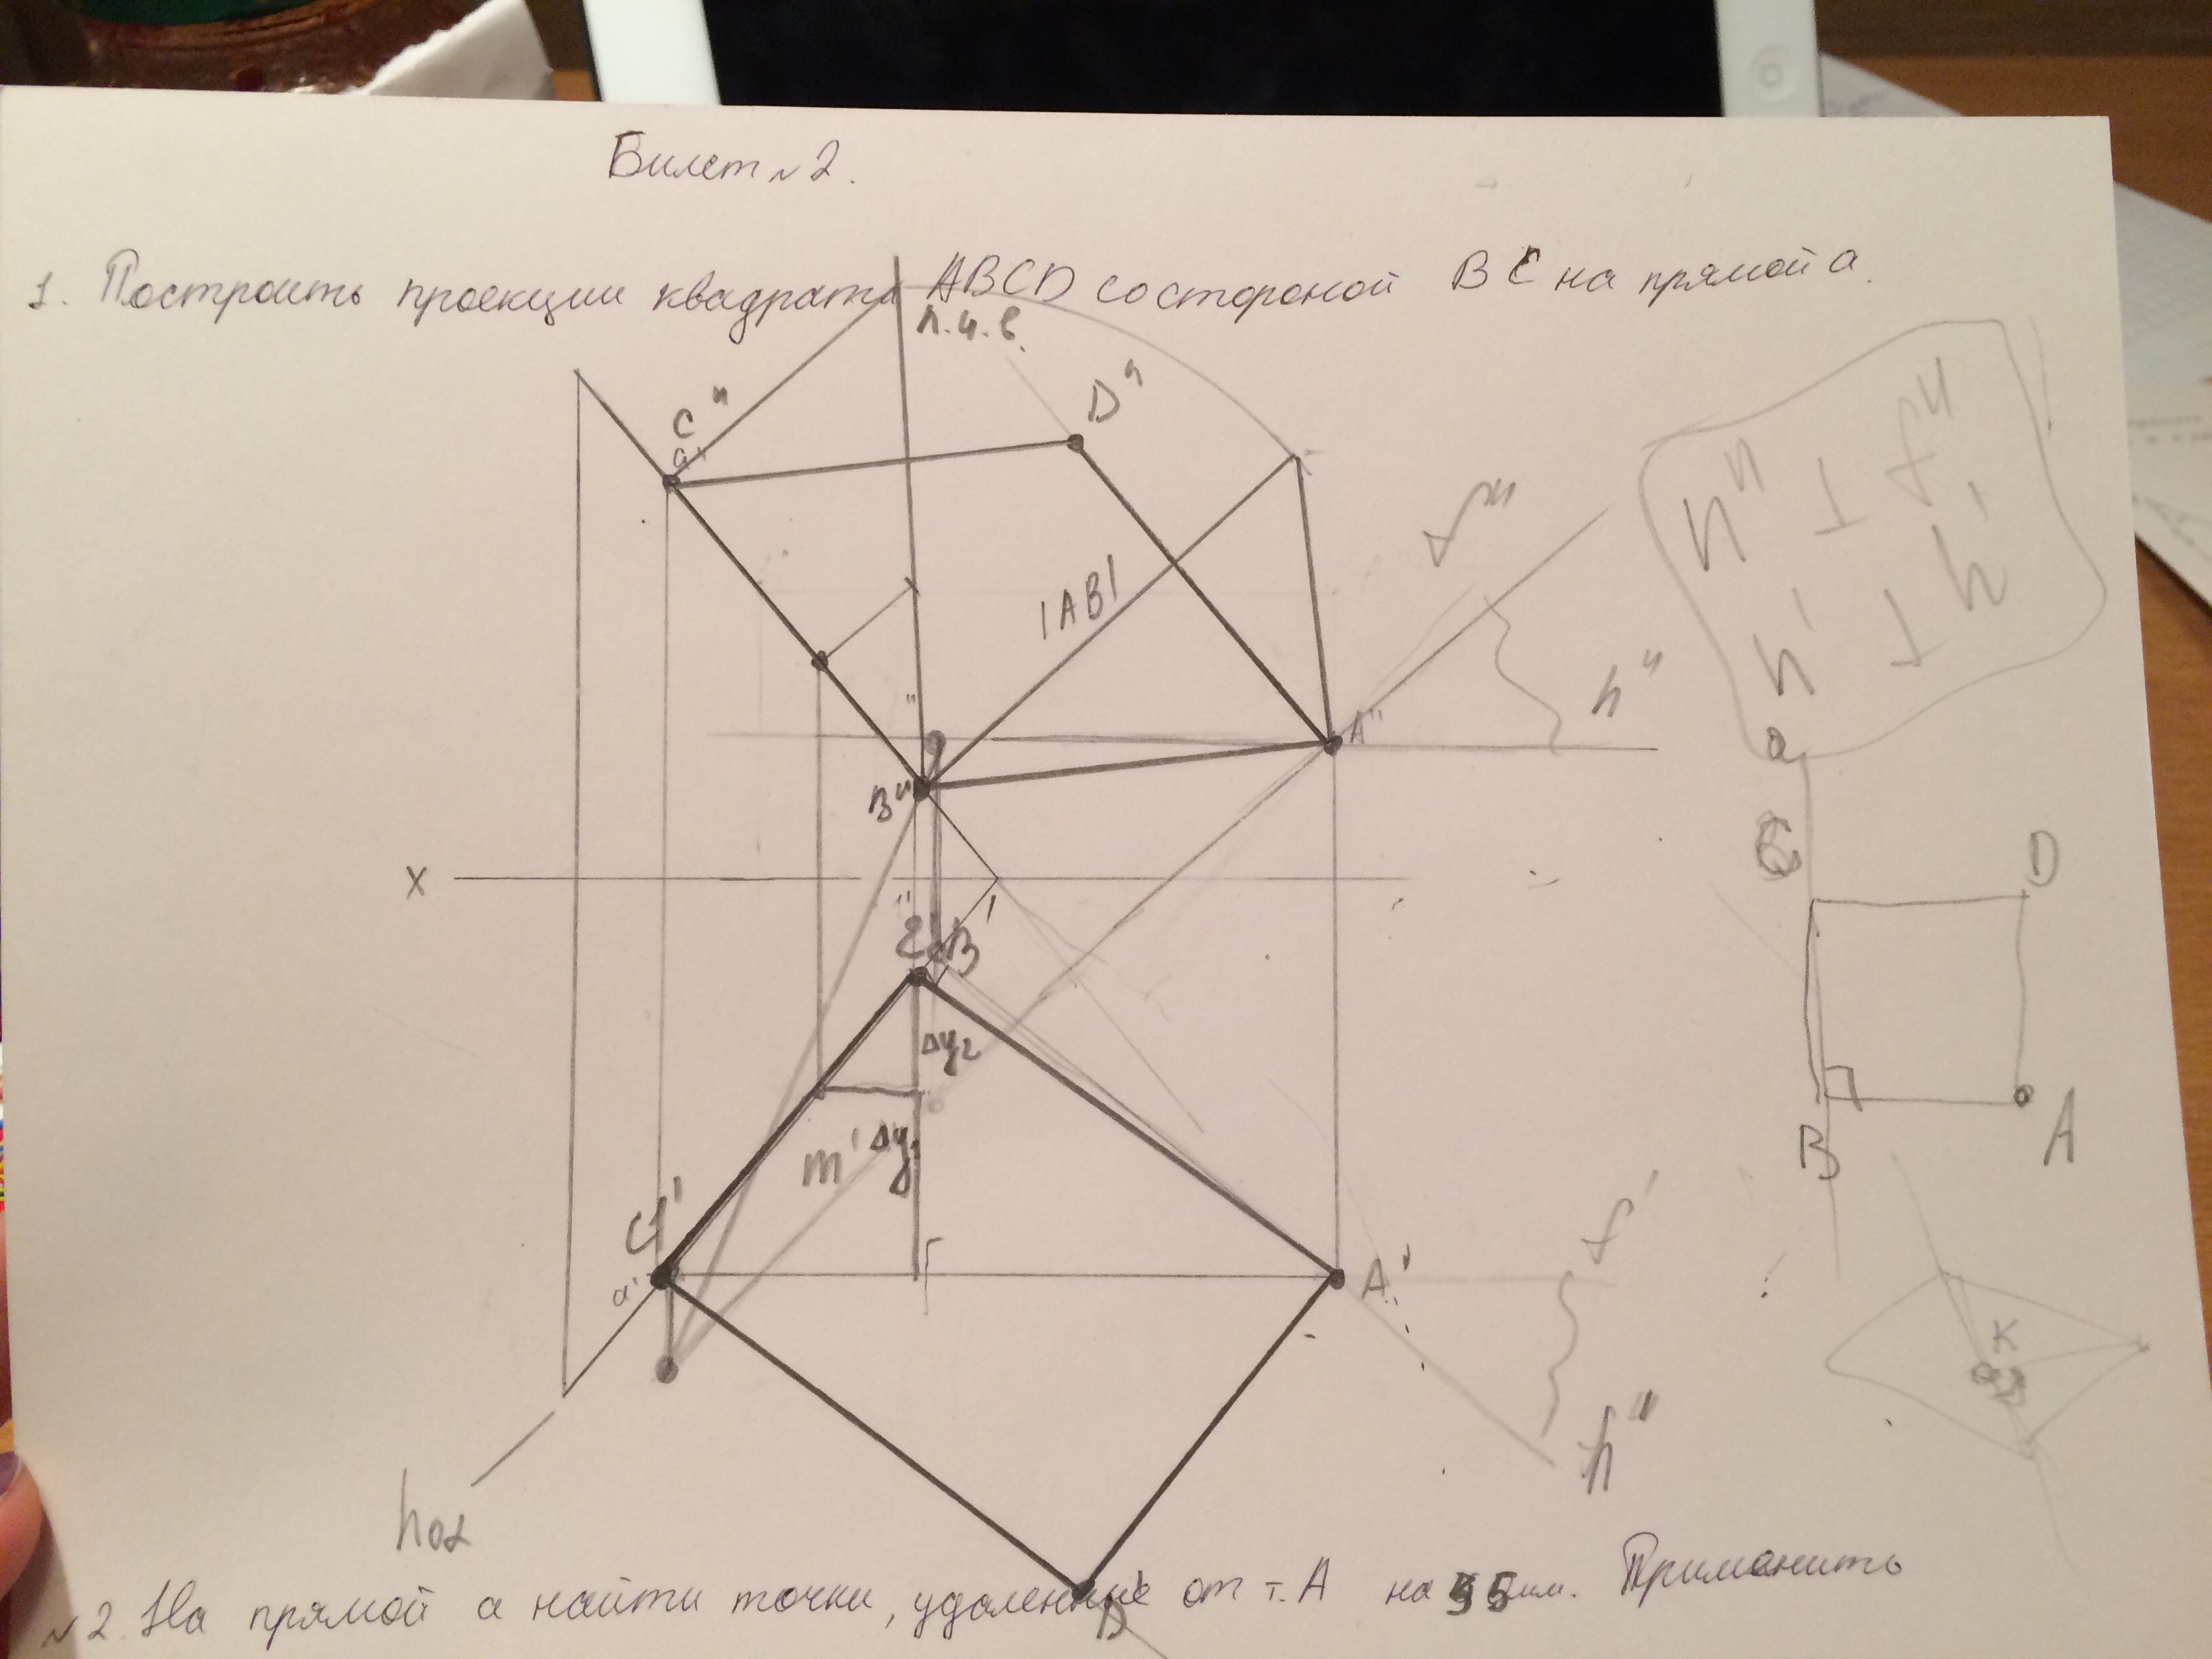 Билет №2.
1. Построить проекции квадрата ABCD со стороной BC на прямой a.
н.и.в.
C"
a"
D"
f"
|AB|
h"
A"
B"
X
B'
Δy2
m'
Δy1
C'
a'
A'
f'
h"
h0α
D
h" ⊥ f"
h' ⊥ h'
a
C
D
B
A
K
№2. На прямой a найти точки, удаленные от т. A на 55мм. Применить